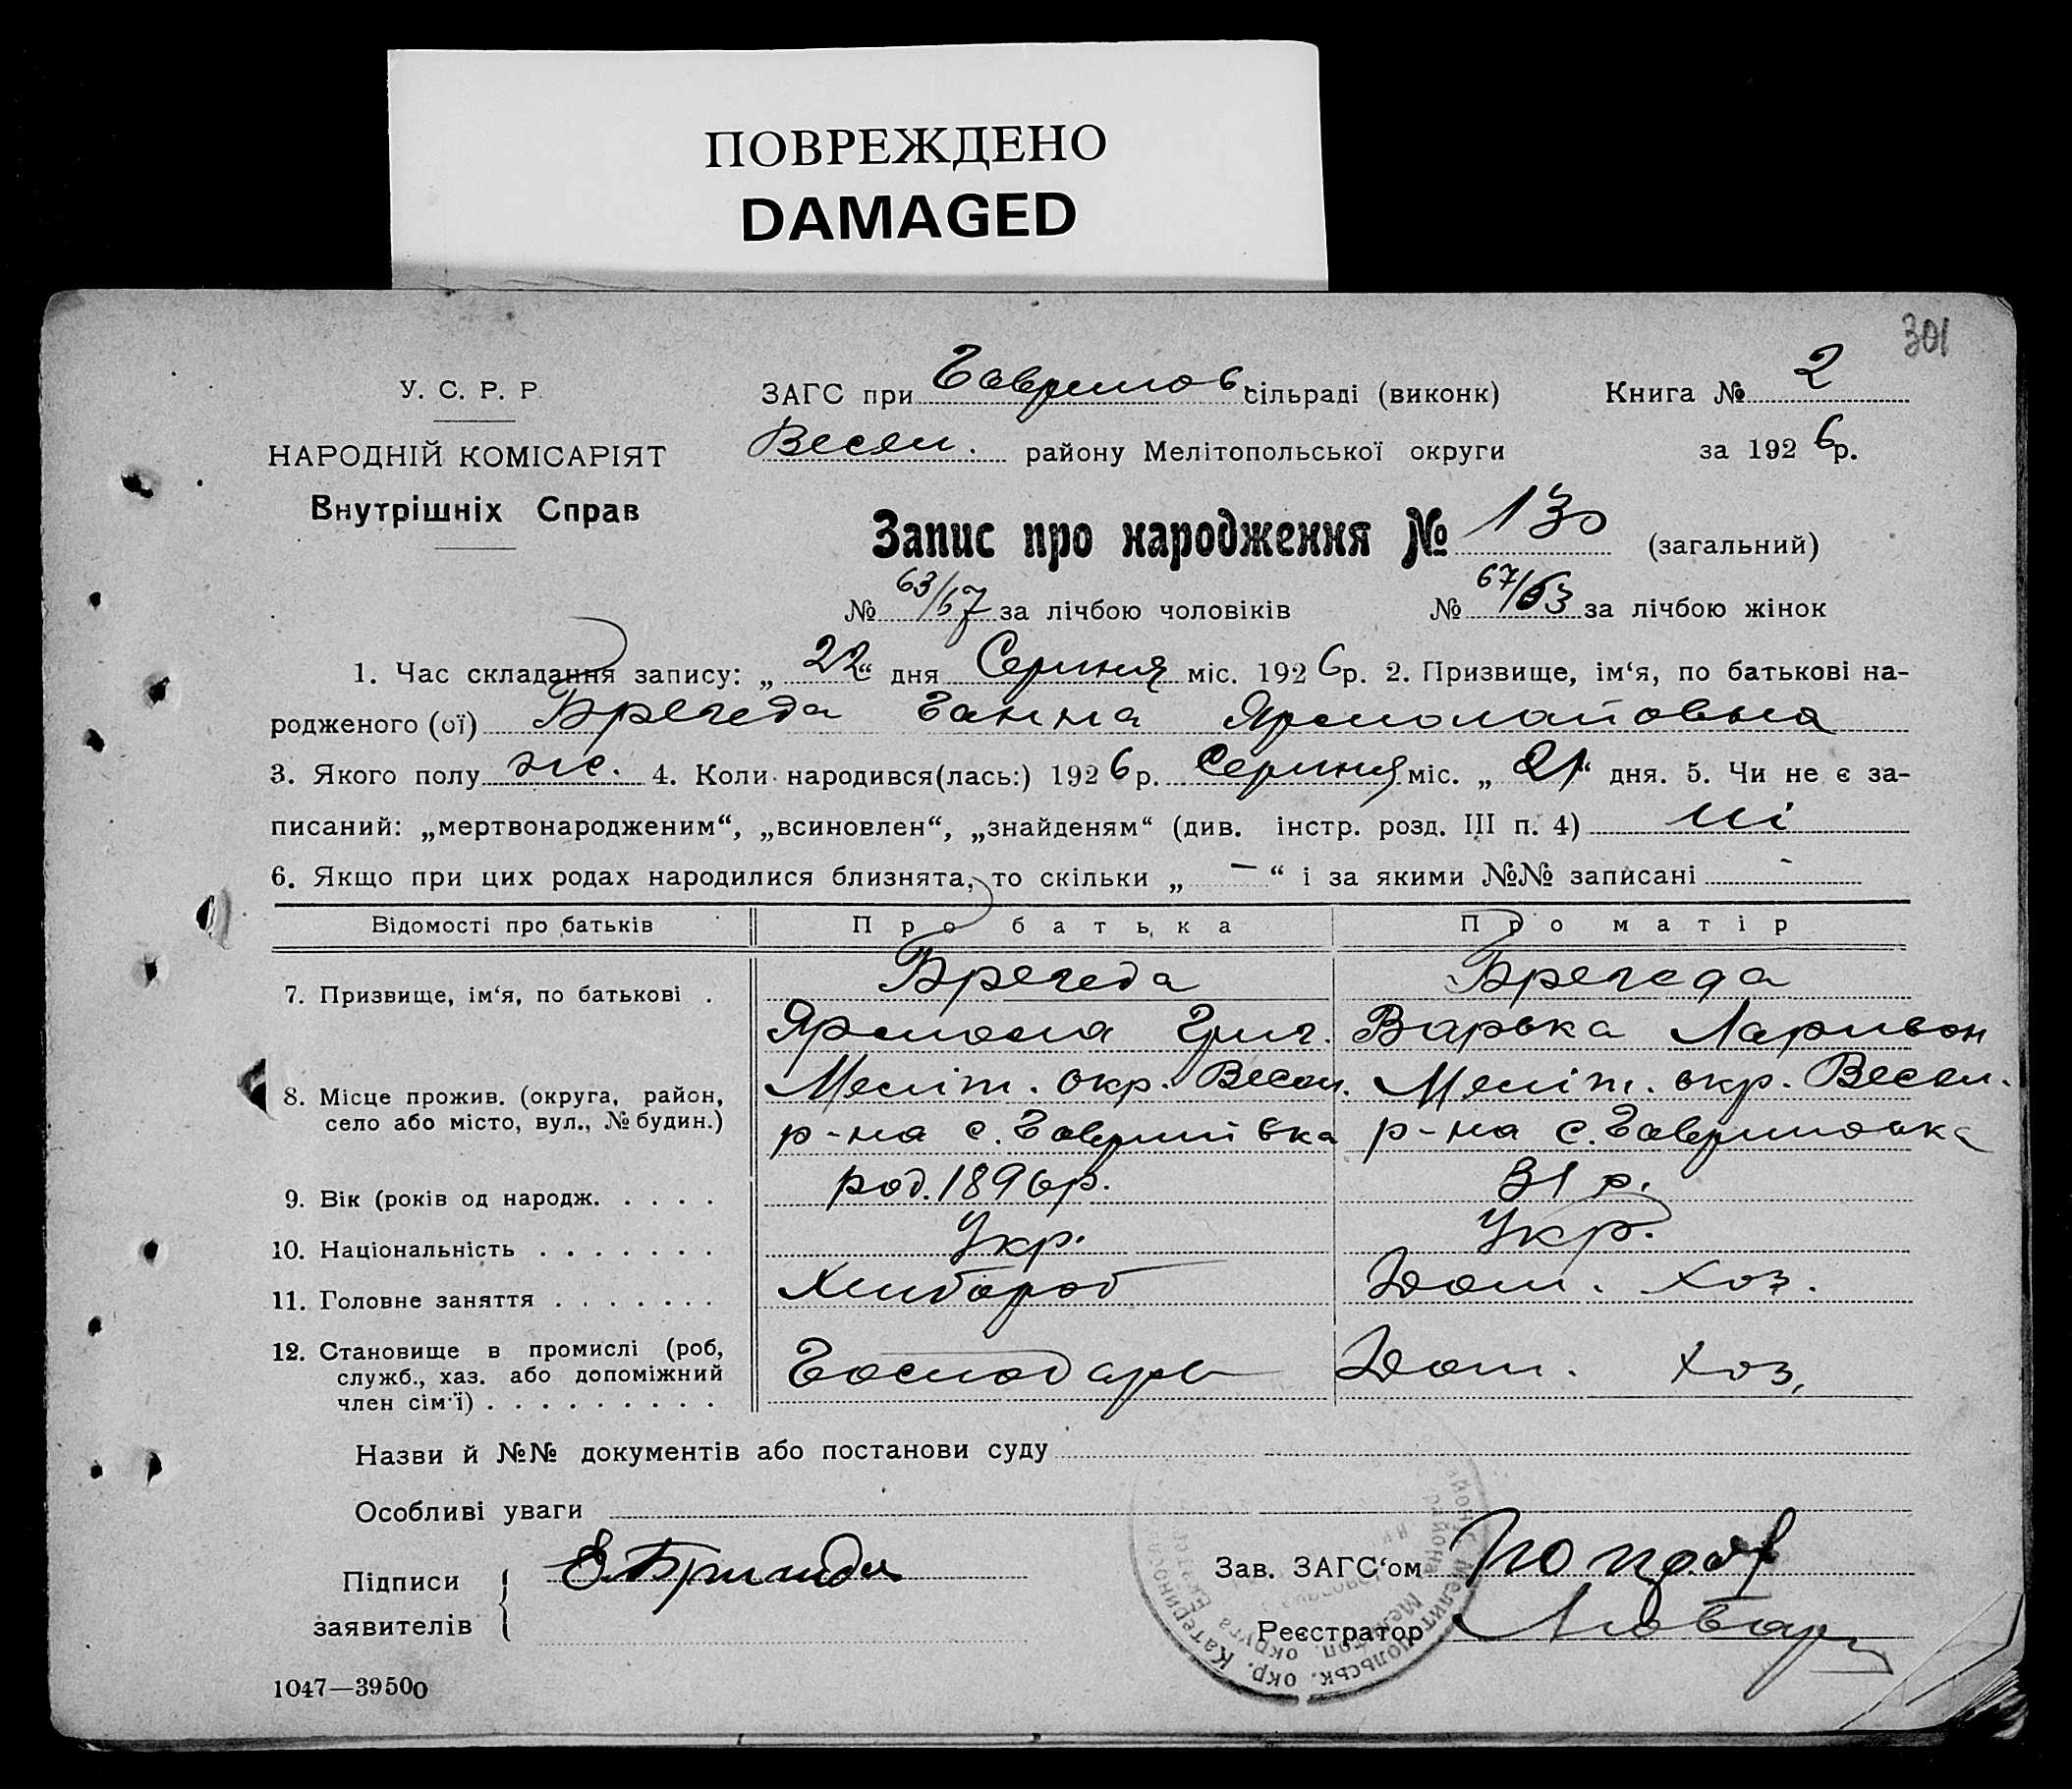 ПОВРЕЖДЕНО
DAMAGED
301
У. С. Р. Р.
НАРОДНІЙ КОМІСАРІЯТ
Внутрішніх Справ
ЗАГС при Гаврилов. сільраді (виконк) Книга № 2
Весел. району Мелітопольської округи за 1926р.
Запис про народження № 130 (загальний)
№ 63/67 за лічбою чоловіків № 67/63 за лічбою жінок
1. Час складання запису: „22“ дня Серпня міс. 1926р. 2. Призвище, ім‘я, по батькові на-
родженого (ої) Брегеда Ганна Ярмолайовна
3. Якого полу жс. 4. Коли народився(лась:) 1926р. Серпня міс. „21“ дня. 5. Чи не є за-
писаний: „мертвонародженим“, „всиновлен“, „знайденям“ (див. інстр. розд. III п. 4) ні
6. Якщо при цих родах народилися близнята, то скільки „ — “ і за якими №№ записані -
Відомості про батьків Про батька Про матір
7. Призвище, ім‘я, по батькові . Брегеда Брегеда
Ярмола Григ. Варька Ларивон
8. Місце прожив. (округа, район, село або місто, вул., № будин.) Меліт. окр. Весел. Меліт. окр. Весел.
р-на с. Гаврилівка р-на с. Гавриловка
9. Вік (років од народж. . . . . род. 1896р. 31 р.
10. Національність . . . . . . . Укр. Укр.
11. Головне заняття . . . . . . . Хлибороб Дом. хоз.
12. Становище в промислі (роб, служб., хаз. або допоміжний член сім‘ї) . . . . . . . . . Господарь Дом. хоз.
Назви й №№ документів або постанови суду
Особливі уваги
Підписи
заявителів
Зав. ЗАГС‘ом
Реєстратор
1047—39500